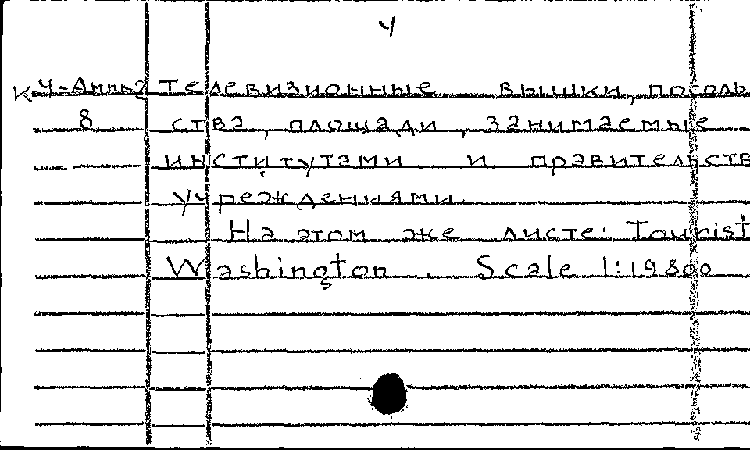 4
К4-Амль2 Телевизионные вышки, посоль
8 ства, площади, занимаемые
институтами и правительств
учреждениями.
На этом же листе: Tourist
Washington. Scale 1:19800